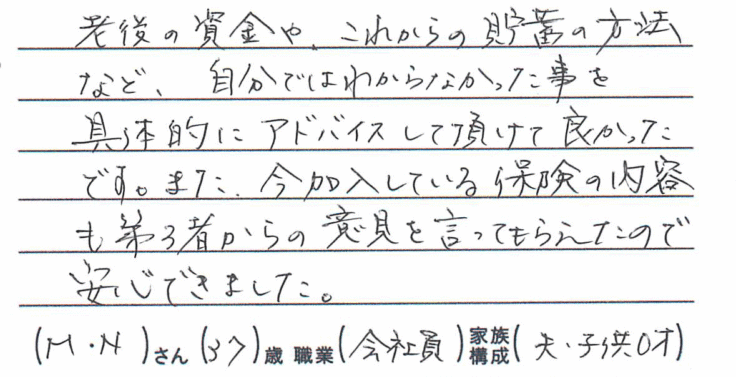 老後の資金や、これからの貯蓄の方法
など、自分ではわからなかった事を
具体的にアドバイスして頂けて良かった
です。また、今加入している保険の内容
も第3者からの意見を言ってもらえたので
安心できました。
(M・N)さん(37)歳 職業(会社員)家族構成(夫・子供0才)